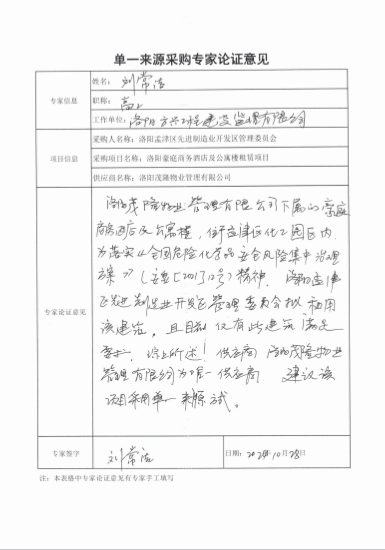 单一来源采购专家论证意见
专家信息
姓名：刘常法
职称：高工
工作单位：洛阳方兴工程建设监理有限公司
项目信息
采购人名称：洛阳孟津区先进制造业开发区管理委员会
采购项目名称：洛阳豪庭商务酒店及公寓楼租赁项目
供应商名称：洛阳茂隆物业管理有限公司
专家论证意见
洛阳茂隆物业管理有限公司下属的豪庭
商务酒店及公寓楼，位于孟津区化工园区内
为落实《全国危险化学品安全风险集中治理
方案》（安委〔2021〕12号）精神，洛阳孟津
区先进制造业开发区管理委员会拟租用
该建筑。且目前仅有此建筑满足
要求。综上所述！供应商洛阳茂隆物业
管理有限公司为唯一供应商 建议该
项目采用单一来源方式。
专家签字
刘常法
日期：2024年10月28日
注：本表格中专家论证意见有专家手工填写